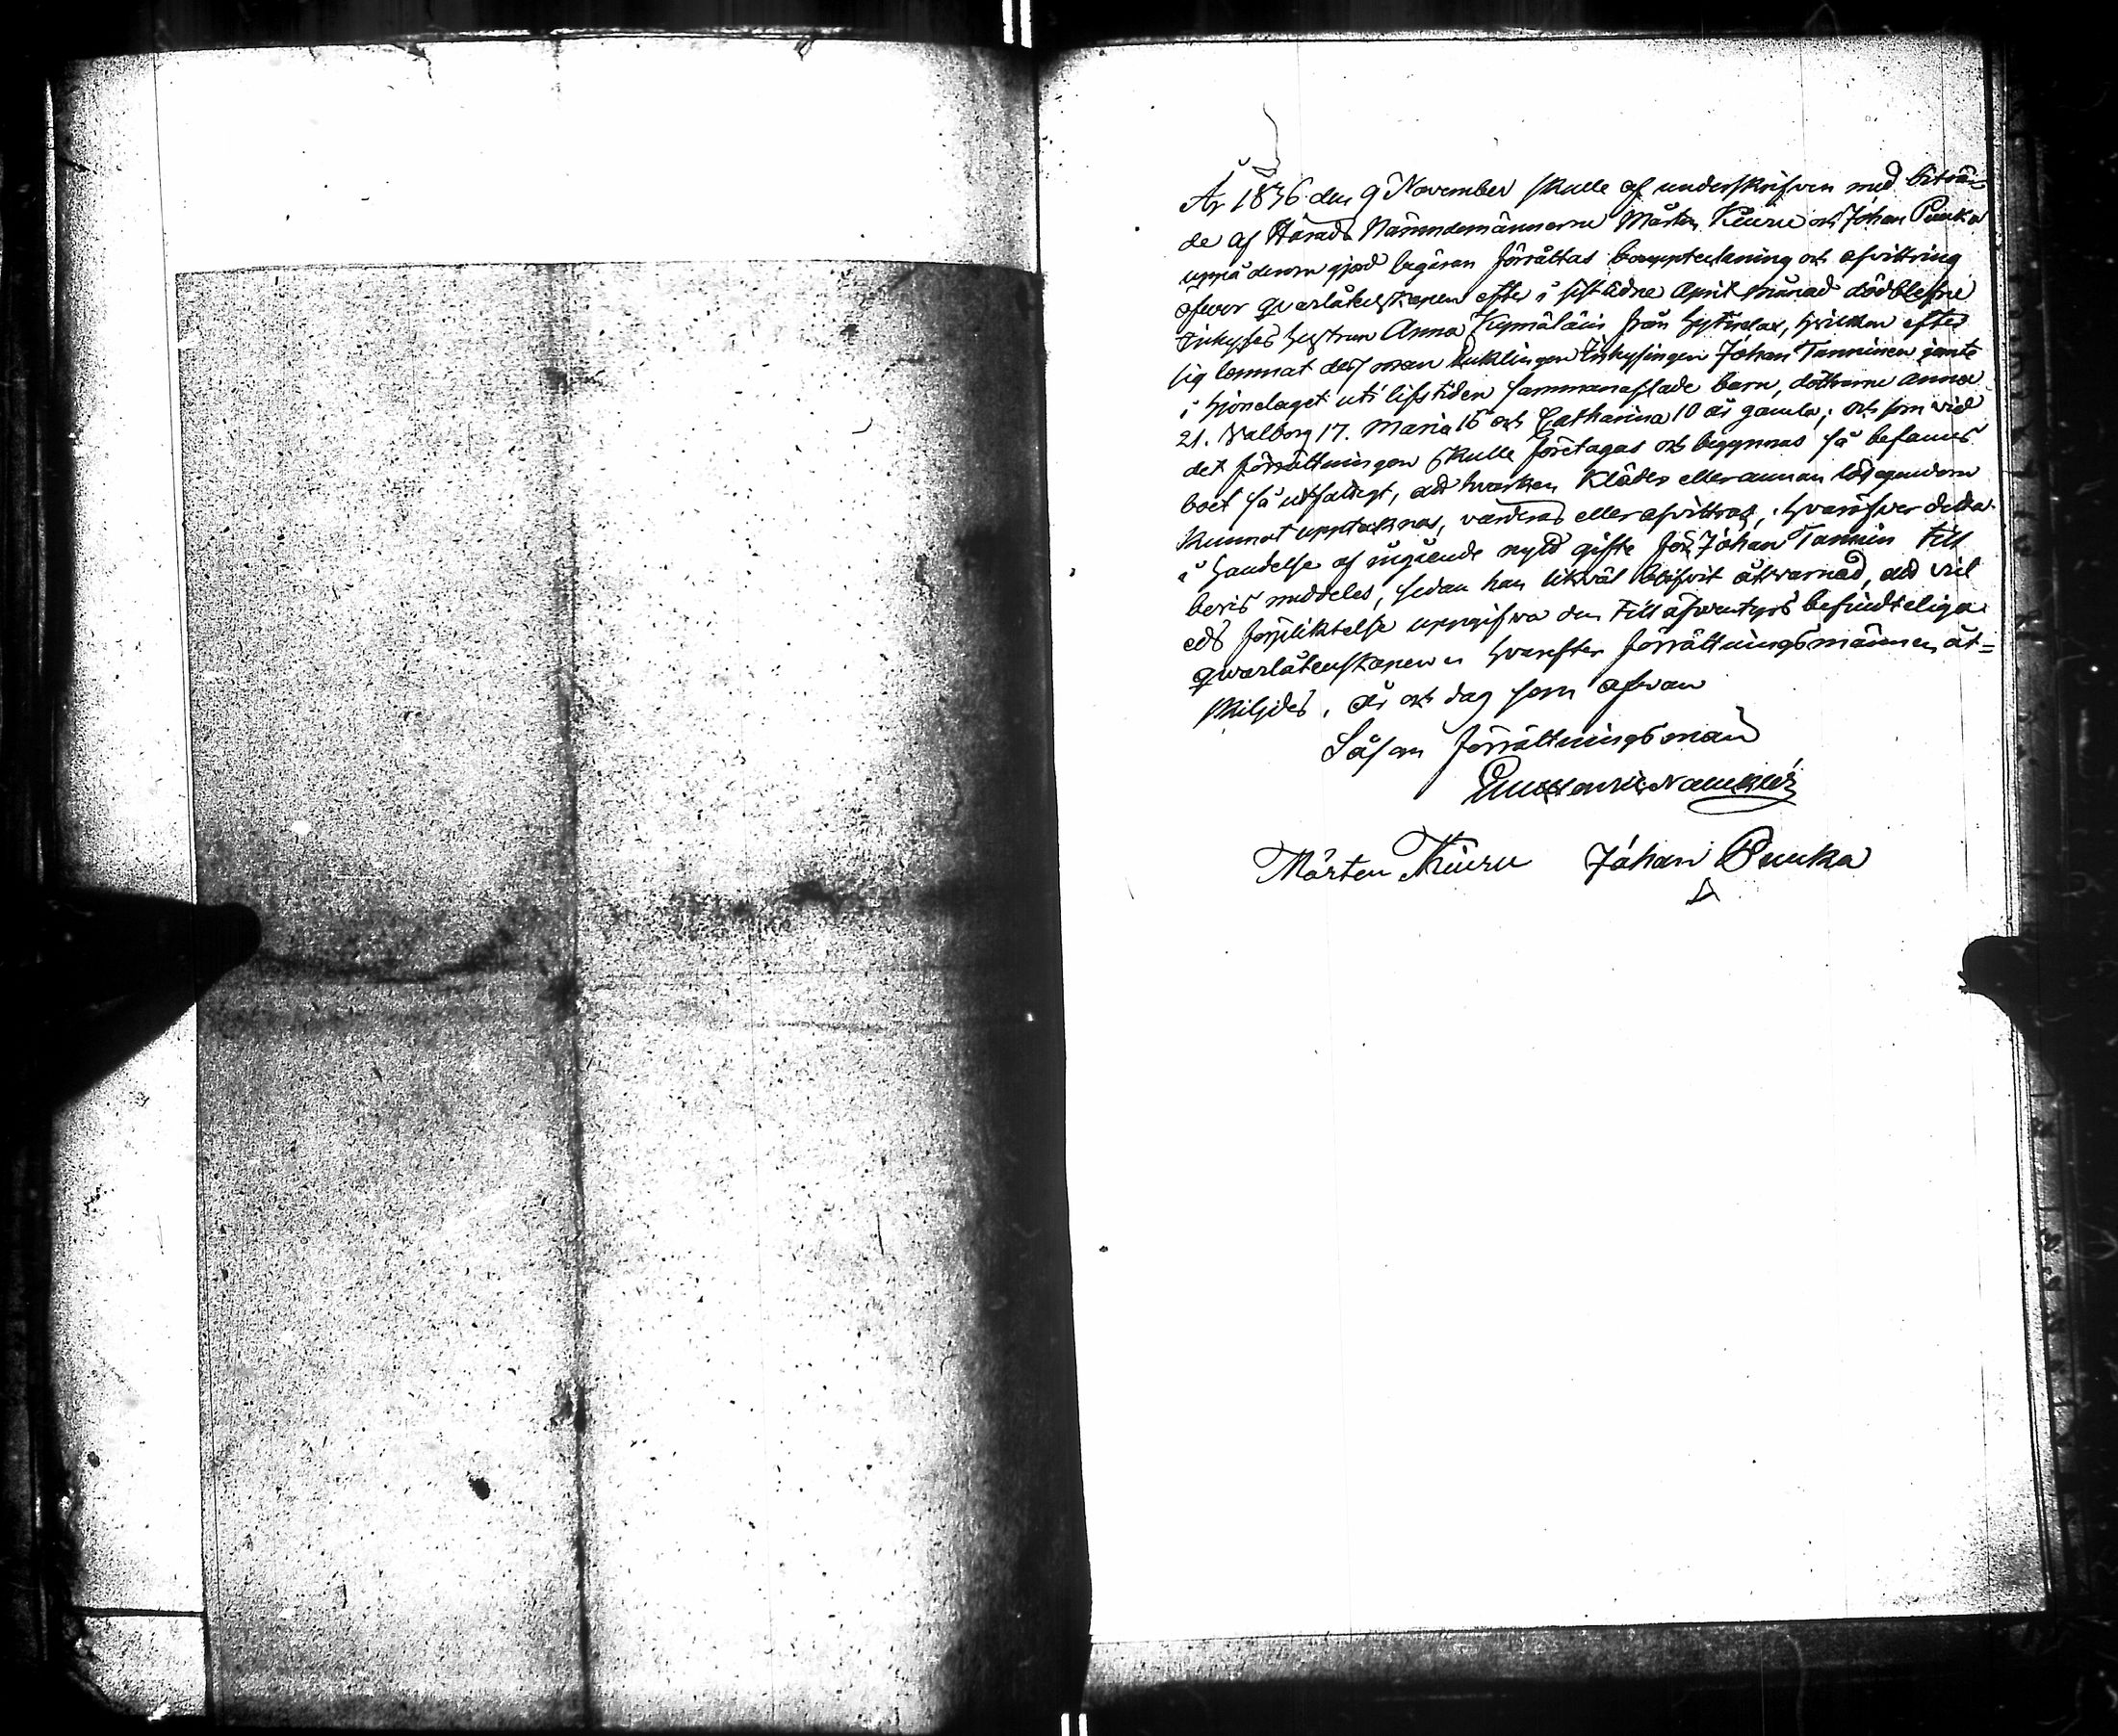 År 1836 den 9 November skulle af underskrifven med biträ-
de af Härads Nämndemännerne Mårten Kiuru och Johan Puuka
uppå derom gjord begäran förrättas bouppteckning och afvittring
öfver qvarlåtenskapen efter i sistledne April månad dödblefne
Inhyses hustrun Anna Kymäläin från Hytinlax, hvilken efter
sig lemnat dess man Enklingen Inhysingen Johan Tanninen jemte
i hjonelaget uti lifstiden sammanaflade barn, döttrarne Anna
21. Valborg 17. Maria 15 och Catharina 10 år gamla; och som vid
det förrättningen skulle företagas och begynnas så befanns
boet så utfattigt, att hvarken Kläder eller annan lösegendom
kunnat upptecknas, värderas eller afvittras, hvaröfver detta
i händelse af ingående nytt gifte för Johan Tannin till
bevis meddeles, sedan han likväl blifvit åtvarnad, att vid
eds förpliktelse uppgifva den till äfventyrs befindteliga
qvarlåtenskapen hvarefter förrättningsmännen åt=
skiljdes, år och dag som ofvan
Såsom förrättningsman
Mårten Kiuru Johan Puuka